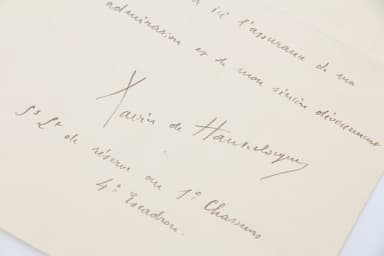 ici l'assurance de ma
admiration et de mon sincère dévouement
Xavier de Hauteclocque
Ss Lt de réserve au 1er Chasseurs
4e Escadron.